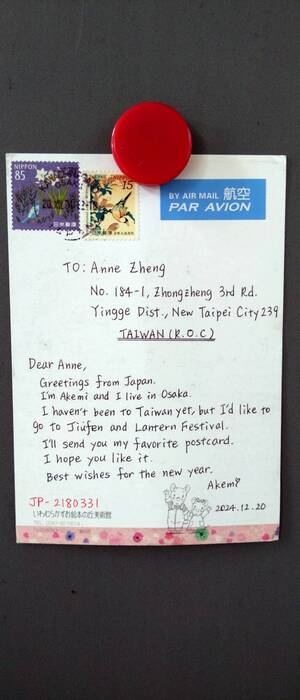 NIPPON
85
15
日本郵便
BY AIR MAIL 航空
PAR AVION
TO: Anne Zheng
No. 184-1, Zhongzheng 3rd Rd.
Yingge Dist., New Taipei City 239
TAIWAN (R.O.C)
Dear Anne,
Greetings from Japan.
I'm Akemi and I live in Osaka.
I haven't been to Taiwan yet, but I'd like to
go to Jiufen and Lantern Festival.
I'll send you my favorite postcard.
I hope you like it.
Best wishes for the new year.
Akemi
JP-2180331
2024.12.20
いわむらかずお絵本の丘美術館